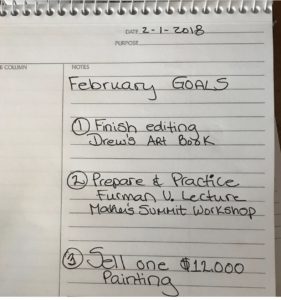 DATE 2-1-2018
PURPOSE
E COLUMN
NOTES
February GOALS
① Finish editing
Drew's ART Book
② Prepare & Practice
Furman U. Lecture
Maker's SUMMIT WORKSHOP
③ Sell one $12.000
Painting